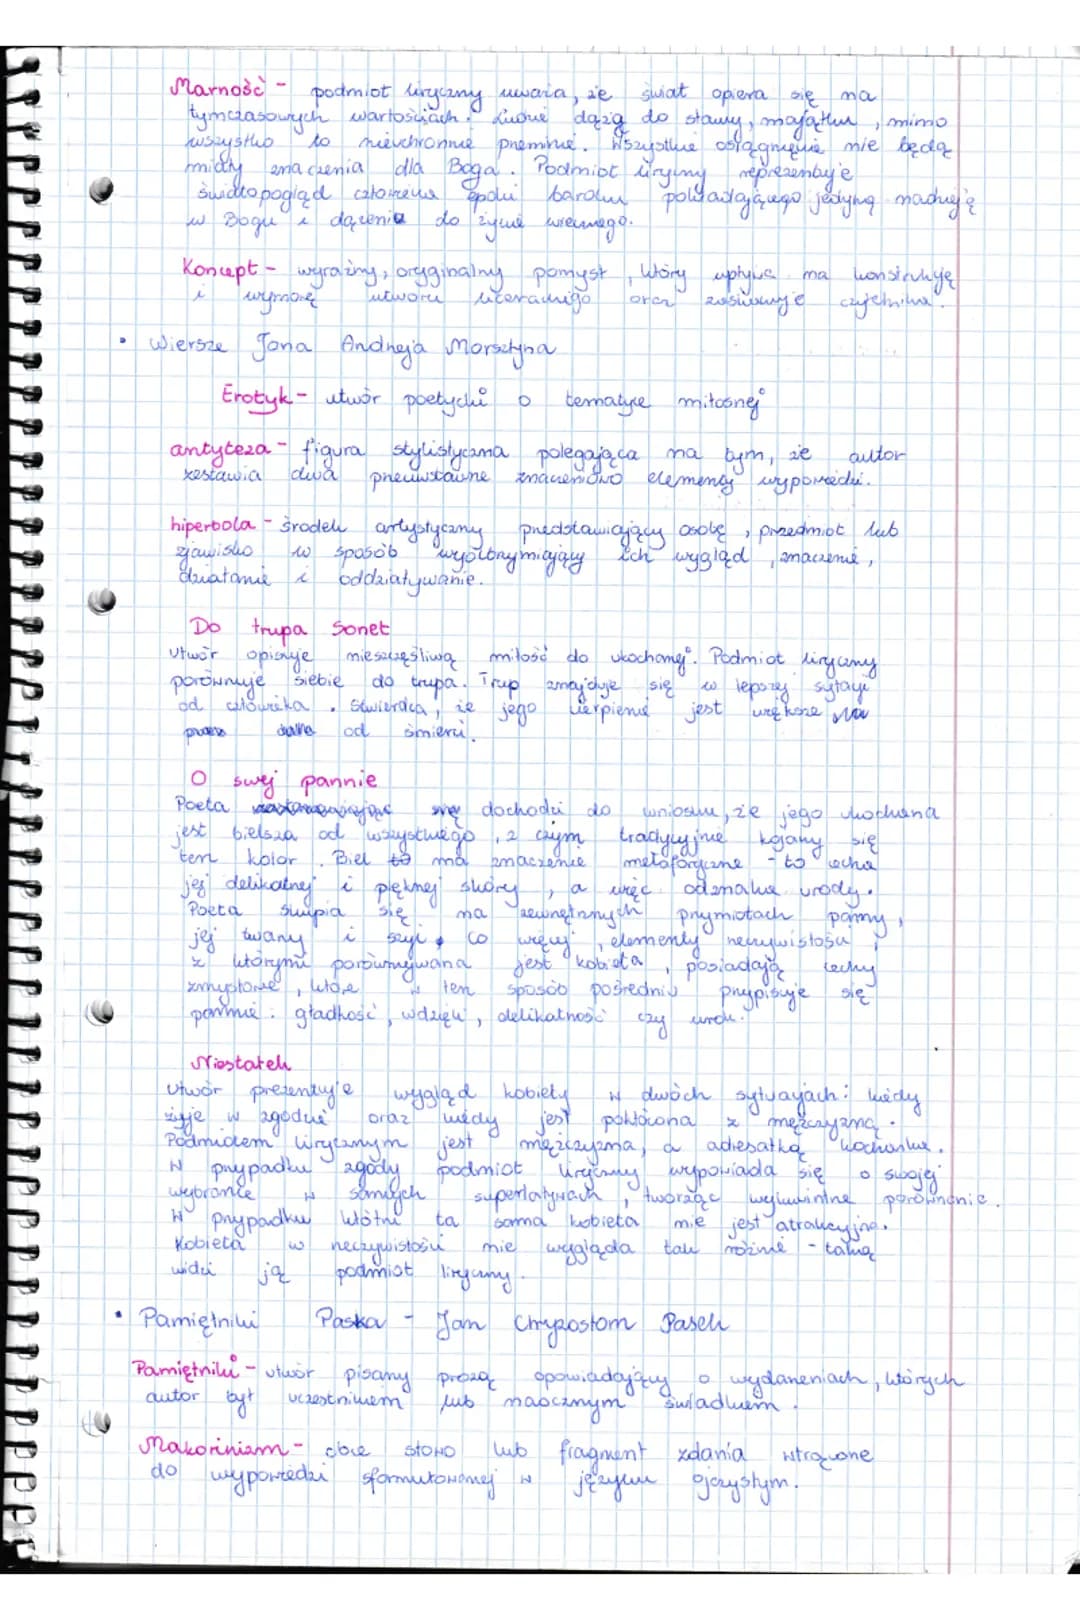 Marność - podmiot liryczny uważa, że świat opiera się na
tymczasowych wartościach. Ludzie dążą do sławy, majątku, mimo
wszystko to nieuchronnie przeminie. Wszystkie osiągnięcia nie będą
miały znaczenia dla Boga. Podmiot liryczny reprezentuje
światopogląd człowieka epoki baroku pokładającego jedyną nadzieję
w Bogu i dążenie do życie wiecznego.
Koncept - wyraźny, oryginalny pomysł, który wpływa na konstrukcję
i wymowę utworu literackiego oraz zaskakuje czytelnika.
• Wiersze Jana Andrzeja Morsztyna
Erotyk - utwór poetycki o tematyce miłosnej
antyteza - figura stylistyczna polegająca na tym, że autor
zestawia dwa przeciwstawne znaczeniowo elementy wypowiedzi.
hiperbola - środek artystyczny przedstawiający osobę, przedmiot lub
zjawisko w sposób wyolbrzymiający ich wygląd, znaczenie,
działanie i oddziaływanie.
Do trupa Sonet
Utwór opisuje nieszczęśliwą miłość do ukochanej. Podmiot liryczny
porównuje siebie do trupa. Trup znajduje się w lepszej sytacji
od człowieka. Stwierdza, że jego cierpienie jest większe
od śmierci.
O swej pannie
Poeta się dochodzi do wniosku, że jego ukochana
jest bielsza od wszystkiego, z czym tradycyjnie kojarzy się
ten kolor. Biel ma znaczenie metaforyczne - to cecha
jej delikatnej i pięknej skóry, a więc oznaka urody.
Poeta skupia się na zewnętrznych przymiotach panny,
jej twarzy i szyi. co więcej, elementy rzeczywistości,
z którymi porównywana jest kobieta, posiadają cechy
zmysłowe, które w ten sposób pośrednio przypisuje się
pannie: gładkość, wdzięk, delikatność czy urok.
Niestatek
Utwór prezentuje wygląd kobiety w dwóch sytuacjach: kiedy
żyje w zgodzie oraz kiedy jest pokłócona z mężczyzną.
Podmiotem lirycznym jest mężczyzna, a adresatką kochanka.
W przypadku zgody podmiot liryczny wypowiada się o swojej
wybrance w samych superlatywach, tworząc wykwintne porównanie.
W przypadku kłótni ta sama kobieta nie jest atrakcyjna.
Kobieta w rzeczywistości nie wygląda tak różnie - taką
widzi ją podmiot liryczny.
• Pamiętniki Paska - Jan Chryzostom Pasek
Pamiętniki - utwór pisany prozą opowiadający o wydarzeniach, których
autor był uczestnikiem lub naocznym świadkiem.
Makaronizm - obce słowo lub fragment zdania wtrącone
do wypowiedzi sformułowanej w języku ojczystym.